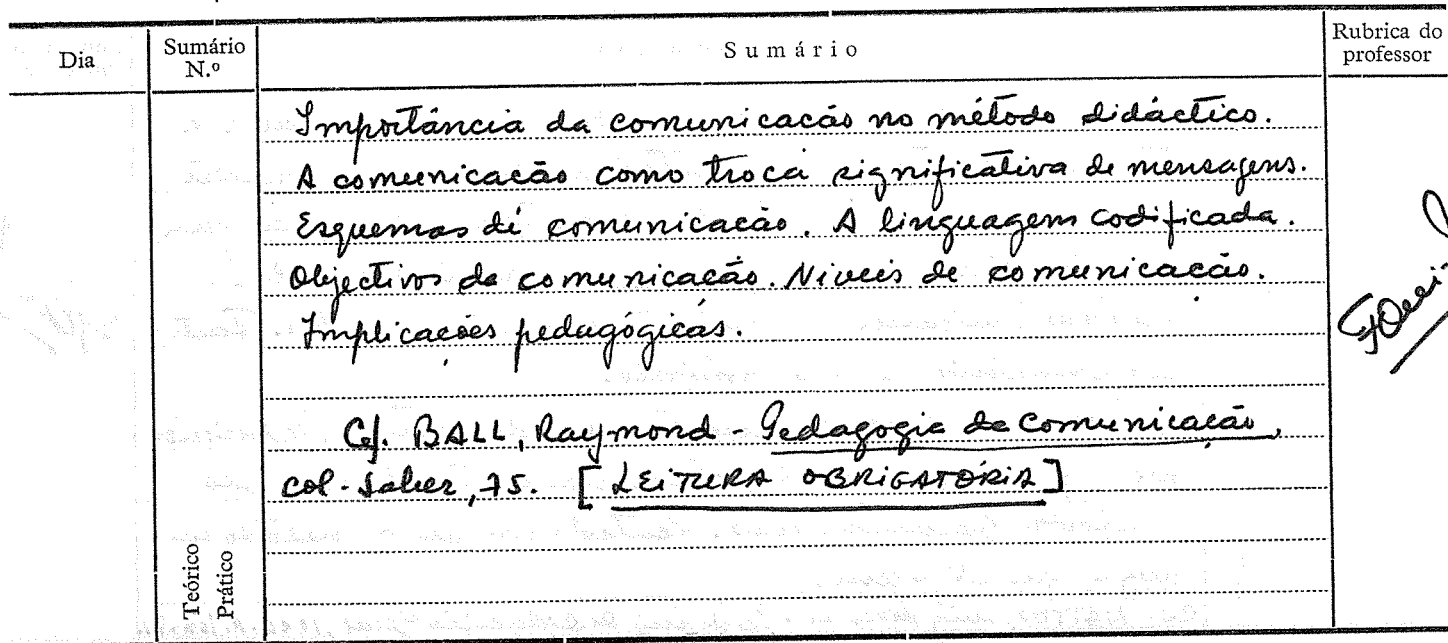 Dia Sumário N.º Sumário Rubrica do professor
Importância da comunicação no método didáctico.
A comunicação como troca significativa de mensagens.
Esquemas de comunicação. A linguagem codificada.
Objectivos da comunicação. Níveis de comunicação.
Implicações pedagógicas.
Cf. BALL, Raymond - Pedagogia da Comunicação,
col. Saber, 75. [LEITURA OBRIGATÓRIA]
Teórico
Prático